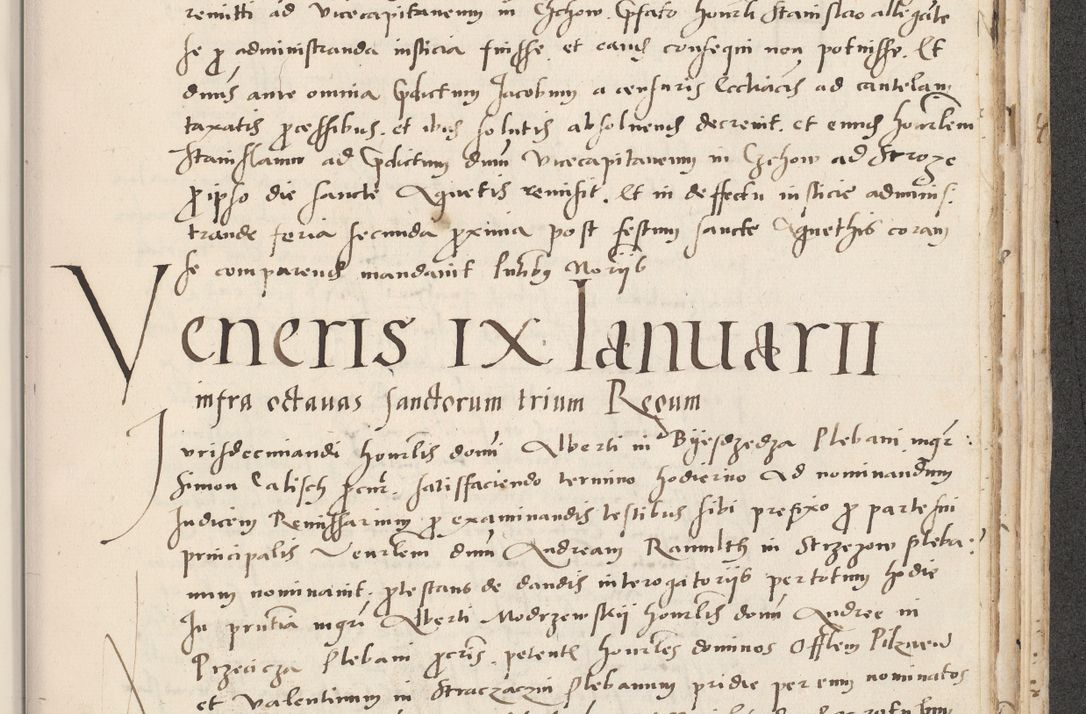 remitti ad vicecapitaneum in Czchow. Prefato honorabili Stanislao allegante
se pro administranda iusticia fuisse. et eam consequi non potuisse. Et
dominus ante omnia predictum Jacobum a censuris ecclesiasticis ad cautelam
taxatis processibus. et ibus solutis absolvendum decrevit. et eundem honorabilem
Stanislaum ad predictum dominum vicecapitaneum in Czchow ad Stroze
pro ipso die sancte Agnetis remisit. Et in deffectu iusticie adminis:
trande feria secunda proxima post festum sancte Agnethis coram
se comparendum mandavit presentibus Notariis
Veneris IX Ianuarii
infra octavas sanctorum trium Regum
Jurisdecinandi honorabilis domini Alberti in Byesdzedza Plebani magister:
Simon Calisch procurator. satisfaciendo termino hodierno Ad nominandum
Iudicem Remissarium pro examinandis testibus sibi prefixo pro parte sui
principalis Venerabilem dominum Andream Ramulth in Strzezow pleba:
num nominavit. protestans de dandis interogatoriis per totum hodie
In presentia magistri Alberti Modrzewskij honorabilis domini Andree in
Przecicza Plebani procuratoris. petentis honorabiles dominos Officialem Pilznensem
et Valentinum in Straczaczin Plebanum pridie per eum nominatos